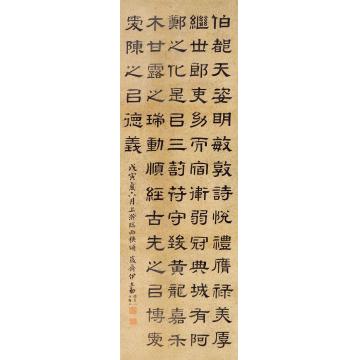 伯都天姿明敏敦詩悅禮膺祿美厚
繼世郎吏幼而宿衛弱冠典城有阿
鄭之化是㠯三剖符守致黃龍嘉禾
木甘露之瑞動順經古先之㠯博愛
愛陳之㠯德義
戊寅夏六月上澣臨西狹頌 峻齋伊立勳